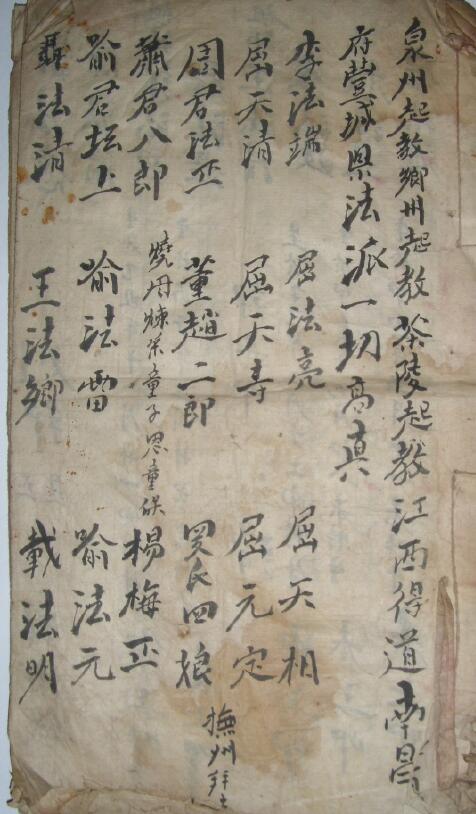 泉州起教郷州起教茶陵起教江西得道南昌
府豐城県法派一切高真
李法端 屈法亮 屈天相
屈天清 屈天寿 屈元定
周君法正 董趙二郎 吴氏四娘 撫州
蕭君八郎 燒丹煉茶童子思童俣 楊梅正
喻君坛上 喻法雷 喻法元
聶法清 王法卿 載法明